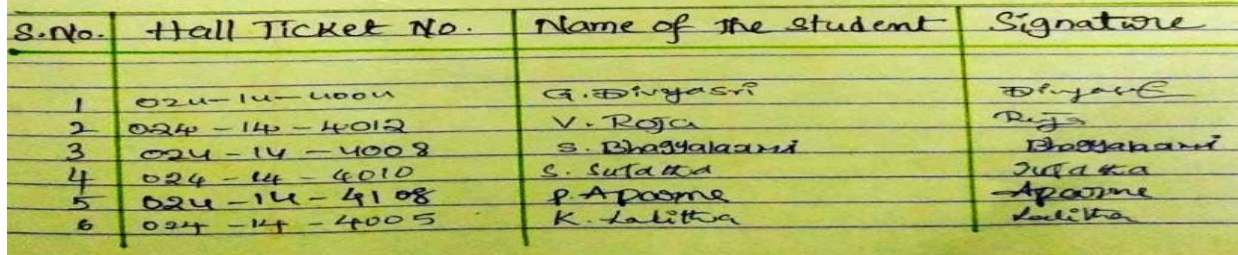 S.No. Hall Ticket No. Name of the student Signature
1 024-14-4004 G. Divyasri
2 024-14-4012 V. Roja Roja
3 024-14-4008 S. Bhagyalaxmi Bhagyalaxmi
4 024-14-4010 S. Sujatha Sujatha
5 024-14-4108 P. Apoorna Apoorna
6 024-14-4005 K. Lalitha Lalitha